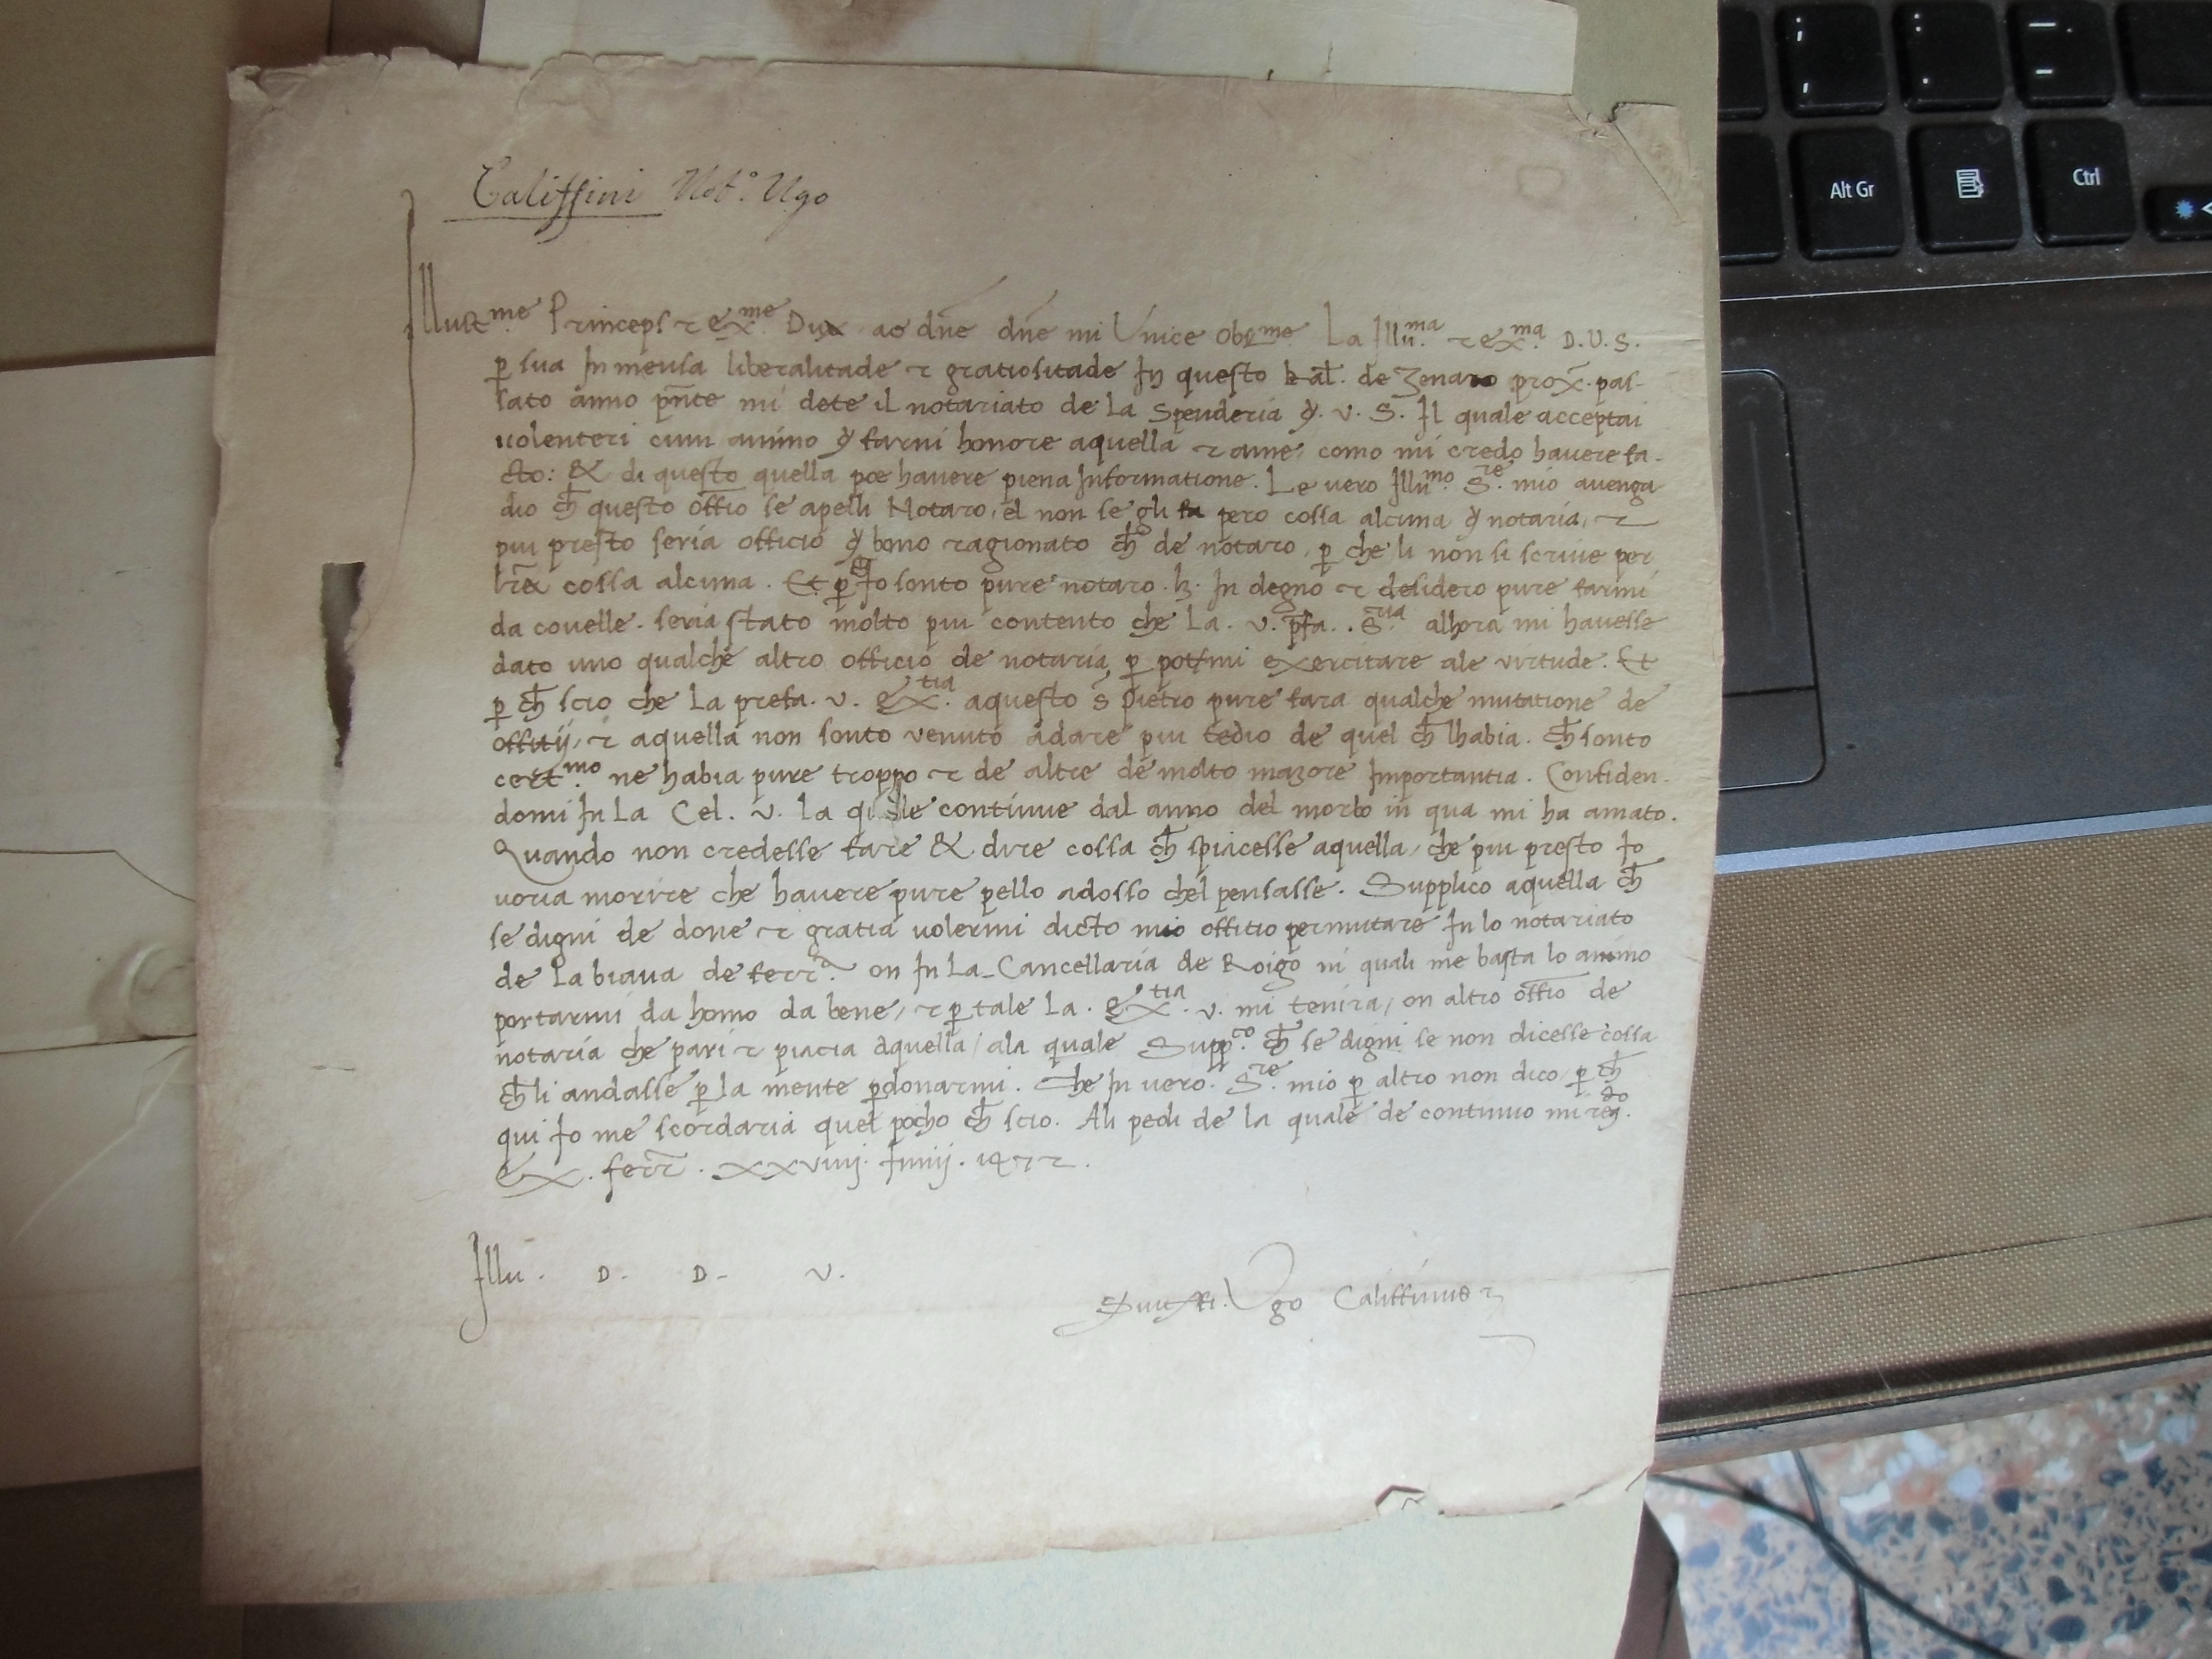 Califfini Not.º Ugo
Illust.me Princeps et ex.me Dux ac dne dne mi Unice Obs.me La Illu.ma et ex.ma D.V.S.
p sua Inmensa liberalitade et gratiositade In questo kal. de Zenaro prox. pas-
sato anno pnte mi dete il notariato de la Spenderia d. v. S. Il quale acceptai
volenteri cum animo d farni honore aquella et ame, como mi credo havere fa-
cto: & di questo quella poe havere piena Informatione. Le vero Illu.mo S.re mio avenga
dio ch questo offio se apelli Notaro, el non se gli fa pero cossa alcuna d notaria, et
piu presto seria officio d bono ragionato ch de notaro, p che li non si scrive per
lra cossa alcuna. Et p ch Io sonto pure notaro. b. In degno et desidero pure farmi
da covelle. seria stato molto piu contento che La. v. pfa. S.ria alhora mi havesse
dato uno qualche altro officio de notaria p potermi exercitare ale virtude. Et
p ch scio che La prefa. v. Ex.tia aquesto s pietro pure fara qualche mutatione de
offitij, et aquella non sonto venuto adare piu tedio de quel ch lhabia. ch sonto
cert.mo ne habia pure troppo et de altre de molto mazore Importantia. Confiden-
domi In La Cel. v. la quale continue dal anno del morbo in qua mi ha amato.
Quando non credesse fare & dire cossa ch spiacesse aquella, che piu presto Io
voria morire che havere pure pello adosso chel pensasse. Supplico aquella ch
se digni de done et gratia volermi dicto mio offitio permutare In lo notariato
de La biava de ferr.a on In La Cancellaria de Roigo ni quali me basta lo animo
portarmi da homo da bene, et p tale La. Ex.tia v. mi tenira, on altro offio de
notaria che pari et piacia aquella, ala quale Supp.co ch se digni se non dicesse cossa
ch li andasse p la mente pdonarmi. Che In vero. S.re mio p altro non dico, p ch
qui Io me scordaria quel pocho ch scio. Ali pedi de la quale de continuo mi rec.do
Ex. ferr. xxviiij. Junij. 1472.
Illu. D. D. V.
Ugo Califfinus
; ,
: .
_ -
Alt Gr
Ctrl